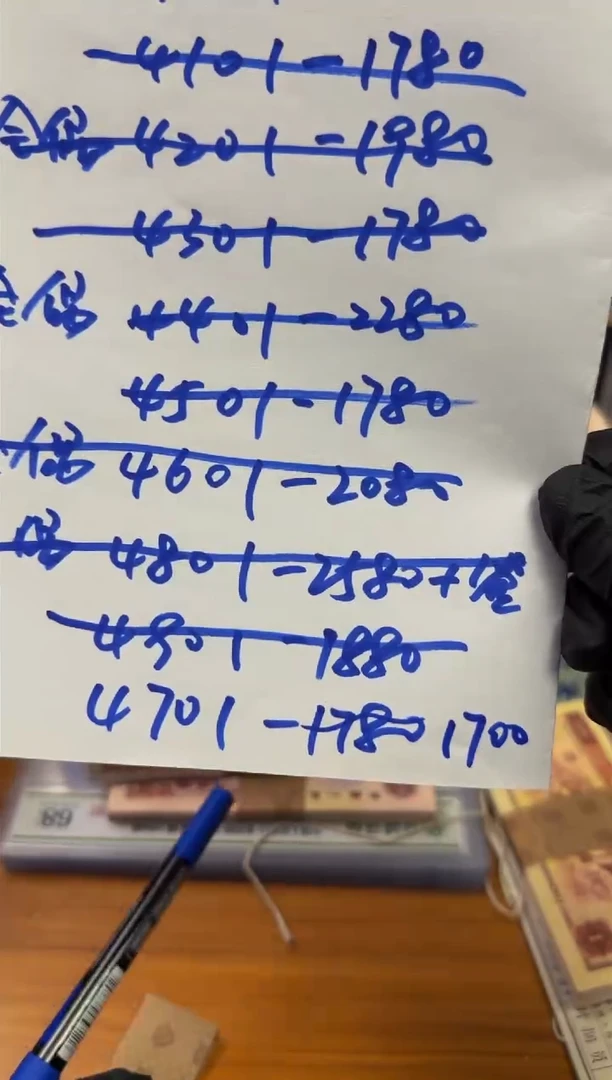 4101-1780
4201-1980
4301-1780
4401-2280
4501-1780
4601-2080
4801-2580+
4901-1880
4701-1780 1700
68